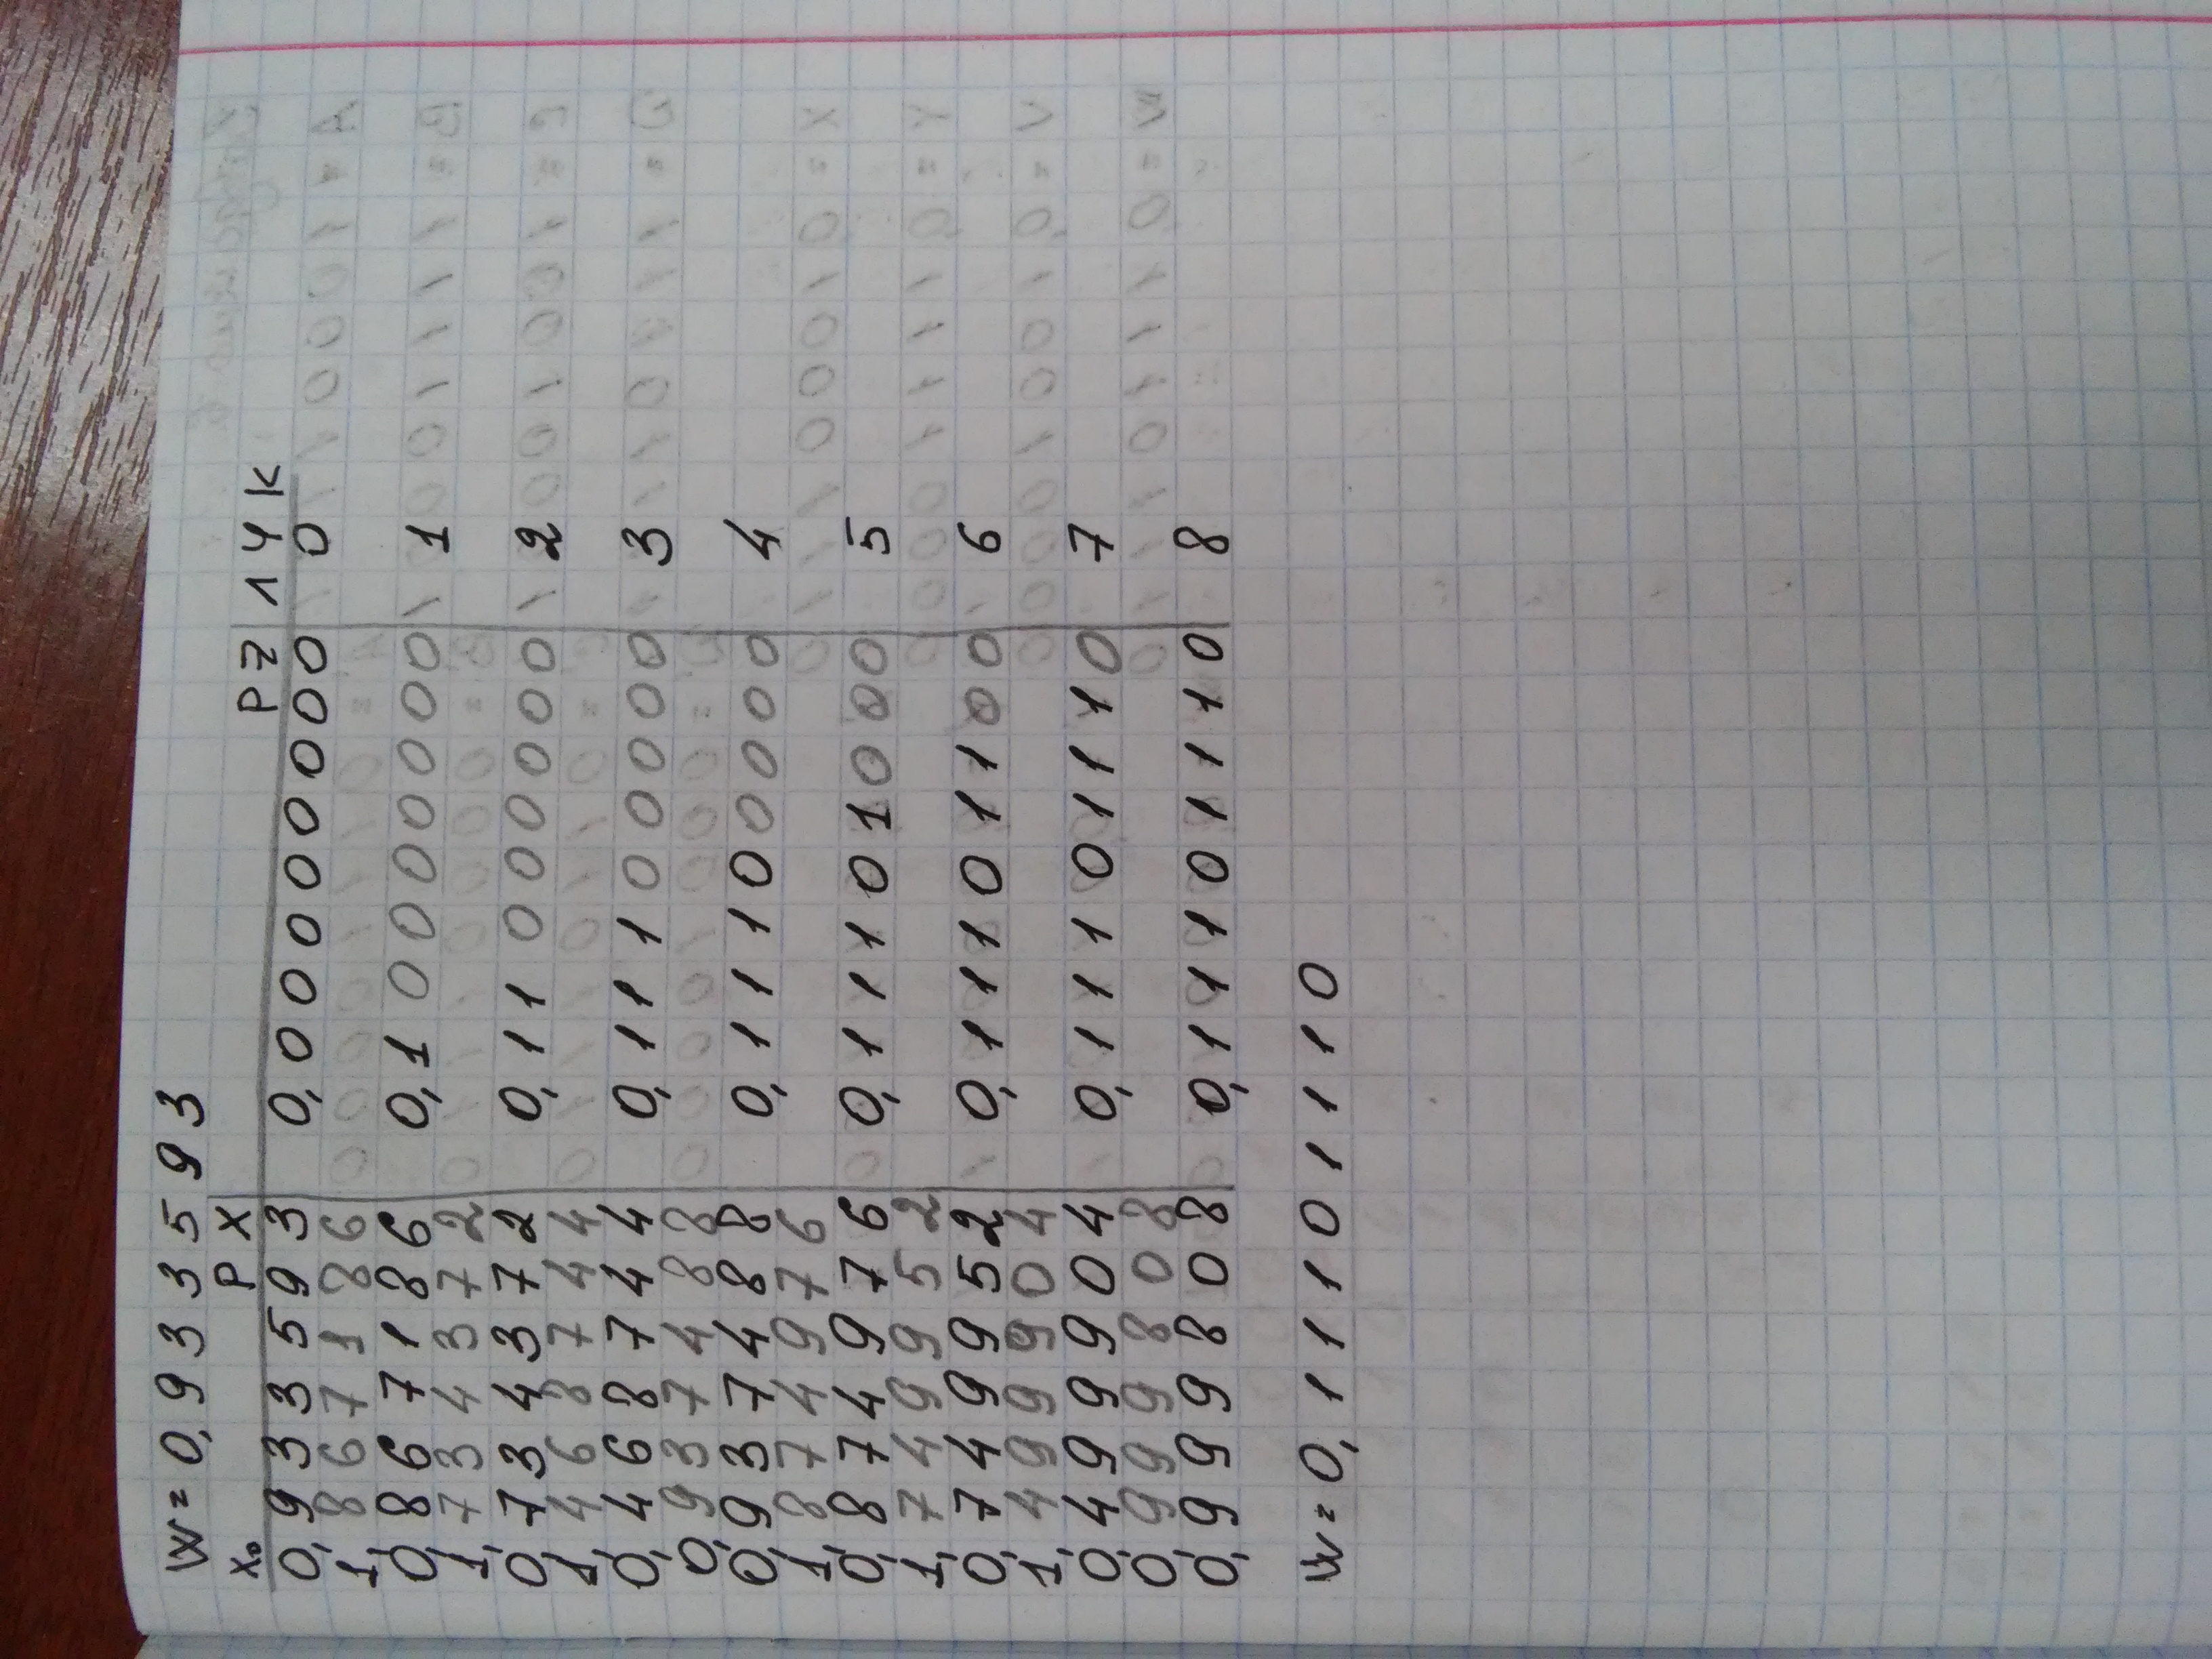 W = 0,933593
X₀ PX PZ 1ЧК
0,933593 0,00000000 0
1,867186
0,867186 0,10000000 1
1,734372
0,734372 0,11000000 2
1,468744
0,468744 0,11100000 3
0,937488
0,937488 0,11100000 4
1,874976
0,874976 0,11101000 5
1,749952
0,749952 0,11101100 6
1,499904
0,499904 0,11101110 7
0,999808
0,999808 0,11101110 8
W = 0,11101110